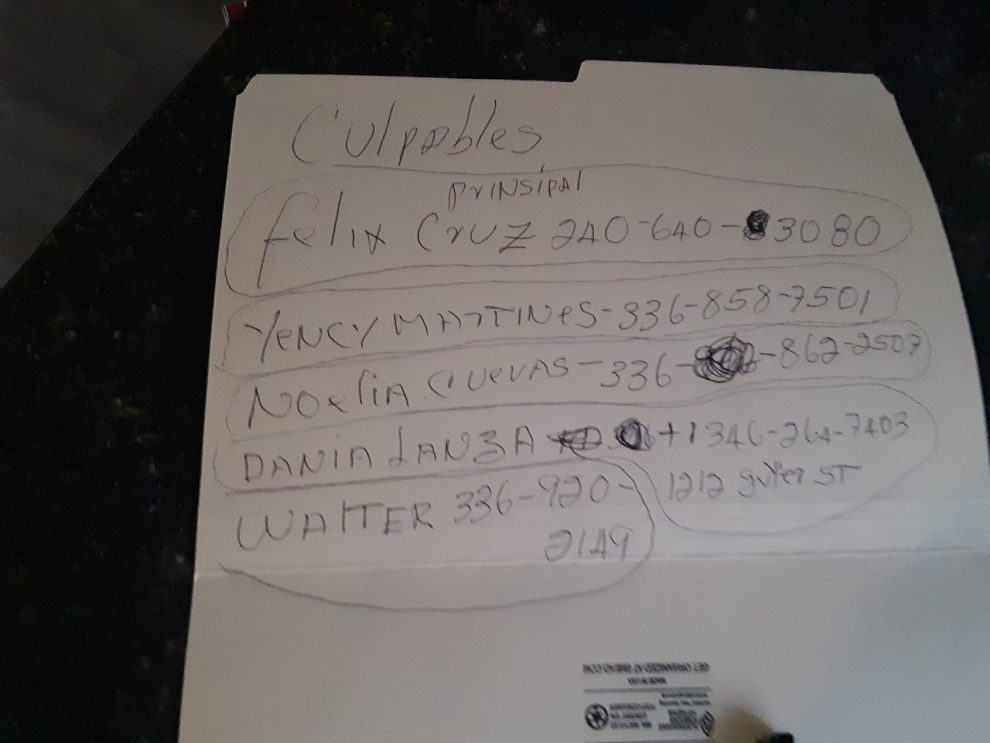 Culpables
PRINSIPAL
Felix Cruz 240-640-3080
YENCY MARTINES-336-858-7501
NOELIA CUEVAS-336-862-2507
DANIA LANZA +1346-264-7403
WALTER 336-920-
1212 ST
2149